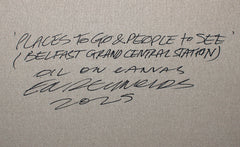 'PLACES TO GO & PEOPLE TO SEE'
(BELFAST GRAND CENTRAL STATION)
OIL ON CANVAS
ED REYNOLDS
2025